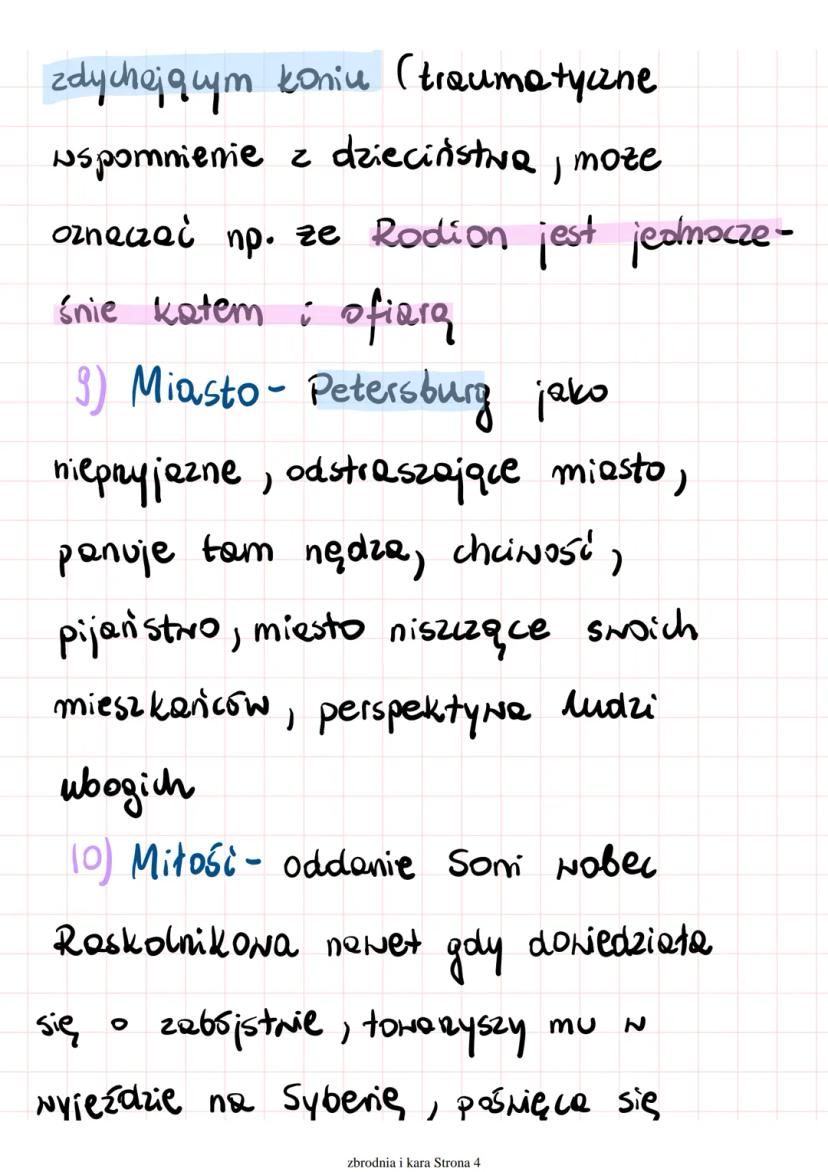 zdychającym koniu (traumatyczne
wspomnienie z dzieciństwa, może
oznaczać np. że Rodion jest jednocze-
śnie katem i ofiarą
9) Miasto- Petersburg jako
nieprzyjazne, odstraszające miasto,
panuje tam nędza, chciwość,
pijaństwo, miasto niszczące swoich
mieszkańców, perspektywa ludzi
ubogich
10) Miłość- oddanie Soni wobec
Raskolnikowa nawet gdy dowiedziała
się o zabójstwie, towarzyszy mu w
wyjeździe na Syberię, poświęca się
zbrodnia i kara Strona 4